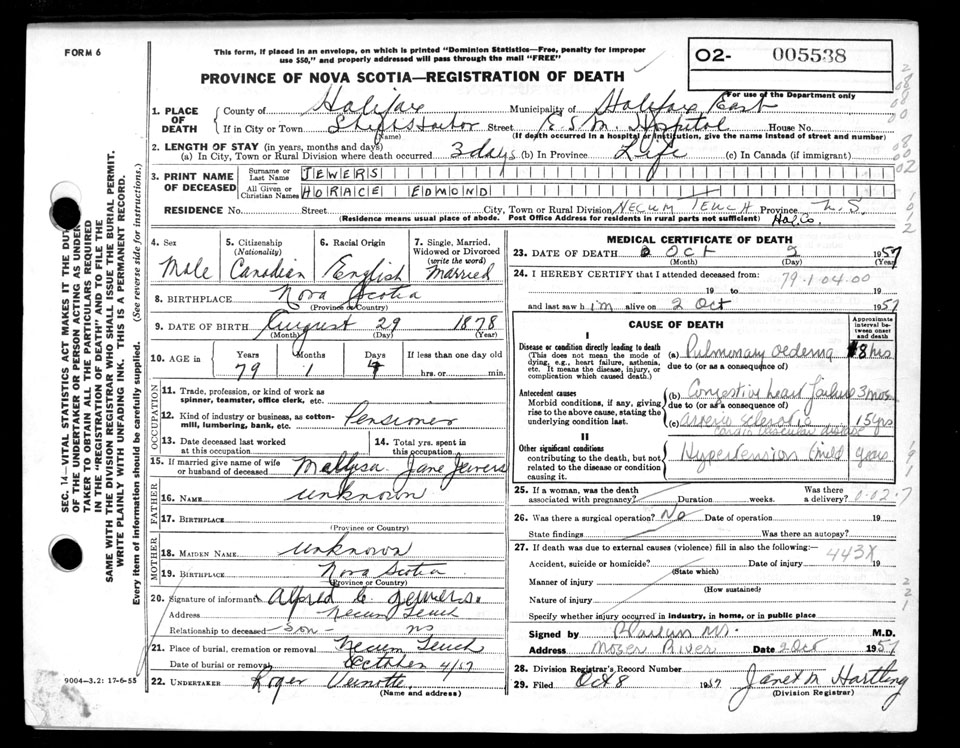 FORM 6
This form, if placed in an envelope, on which is printed "Dominion Statistics—Free, penalty for improper
use $50," and properly addressed will pass through the mail "FREE"
O2- 005538
For use of the Department only
PROVINCE OF NOVA SCOTIA—REGISTRATION OF DEATH
1. PLACE OF DEATH
County of Halifax Municipality of Halifax East
If in City or Town Street E S M. Hospital House No.
(Name) (If death occurred in a hospital or institution, give the name instead of street and number)
2. LENGTH OF STAY (in years, months and days)
(a) In City, Town or Rural Division where death occurred 3 days (b) In Province Life (c) In Canada (if immigrant)
3. PRINT NAME OF DECEASED
Surname or Last Name JEWERS
All Given or Christian Names HORACE EDMOND
RESIDENCE No. Street City, Town or Rural Division NECUM TEUCH Province N.S.
(Residence means usual place of abode. Post Office Address for residents in rural parts not sufficient) Hal. Co.
4. Sex Male
5. Citizenship (Nationality) Canadian
6. Racial Origin English
7. Single, Married, Widowed or Divorced (write the word) Married
8. BIRTHPLACE Nova Scotia
(Province or Country)
9. DATE OF BIRTH August 29 1878
(Month) (Day) (Year)
10. AGE in Years Months Days If less than one day old
79 1 hrs. or min.
OCCUPATION
11. Trade, profession, or kind of work as spinner, teamster, office clerk, etc.
12. Kind of industry or business, as cotton-mill, lumbering, bank, etc. Pensioner
13. Date deceased last worked at this occupation
14. Total yrs. spent in this occupation
15. If married give name of wife or husband of deceased Jane Jewers
FATHER
16. NAME unknown
17. BIRTHPLACE
(Province or Country)
MOTHER
18. MAIDEN NAME unknown
19. BIRTHPLACE Nova Scotia
(Province or Country)
20. Signature of informant Alfred C. Jewers
Address Necum Teuch
Relationship to deceased son NS
21. Place of burial, cremation or removal Necum Teuch
Date of burial or removal October 4/57
22. UNDERTAKER Roger Veinotte
(Name and address)
MEDICAL CERTIFICATE OF DEATH
23. DATE OF DEATH Oct 2 1957
(Month) (Day) (Year)
24. I HEREBY CERTIFY that I attended deceased from: 79-1-04-00
19 to 19
and last saw him alive on 2 Oct 1957
CAUSE OF DEATH
Approximate interval between onset and death
I
Disease or condition directly leading to death
(This does not mean the mode of dying, e.g., heart failure, asthenia, etc. It means the disease, injury, or complication which caused death.)
(a) Pulmonary oedema 8 hrs
due to (or as a consequence of)
Antecedent causes
Morbid conditions, if any, giving rise to the above cause, stating the underlying condition last.
(b) Congestive heart failure 3 mos
due to (or as a consequence of)
(c) arterio sclerotic 15 yrs
cardio vascular disease
II
Other significant conditions
contributing to the death, but not related to the disease or condition causing it.
Hypertension (mild) years
25. If a woman, was the death associated with pregnancy? Duration weeks. Was there a delivery?
26. Was there a surgical operation? No Date of operation 19
State findings Was there an autopsy?
27. If death was due to external causes (violence) fill in also the following:— 443X
Accident, suicide or homicide? Date of injury 19
(State which)
Manner of injury
(How sustained)
Nature of injury
Specify whether injury occurred in industry, in home, or in public place
Signed by M.D.
Address Moser River Date 2 Oct 1957
28. Division Registrar's Record Number
29. Filed Oct 8 1957 Janet M Hartling
(Division Registrar)
9004-3.2: 17-6-55
SEC. 14—VITAL STATISTICS ACT MAKES IT THE DUTY
OF THE UNDERTAKER OR PERSON ACTING AS UNDER-
TAKER TO OBTAIN ALL THE PARTICULARS REQUIRED
IN THE "REGISTRATION OF DEATH" AND TO FILE THE
SAME WITH THE DIVISION REGISTRAR WHO SHALL ISSUE THE BURIAL PERMIT.
WRITE PLAINLY WITH UNFADING INK. THIS IS A PERMANENT RECORD.
Every item of information should be carefully supplied. (See reverse side for instructions.)